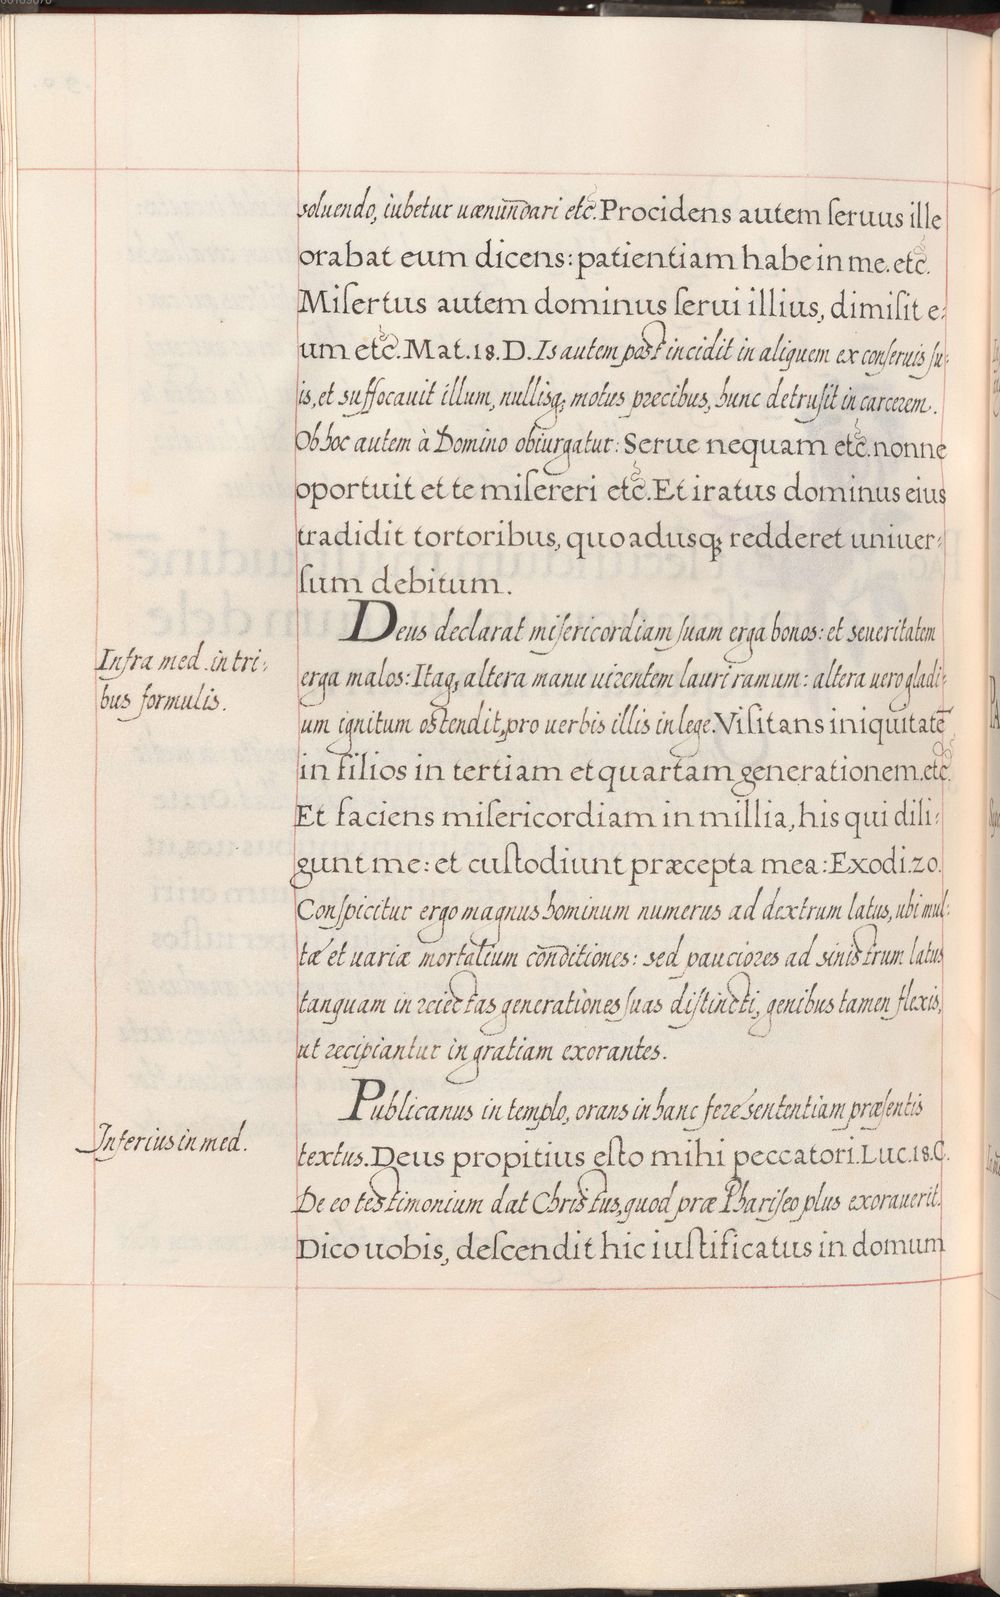 soluendo, iubetur uænundari etc. Procidens autem seruus ille
orabat eum dicens: patientiam habe in me. etc.
Misertus autem dominus serui illius, dimisit e:
um etc. Mat. 18. D. Is autem post incidit in aliquem ex conseruis su:
is, et suffocauit illum, nullisq; motus precibus, hunc detrusit in carcerem.
Ob hoc autem à Domino obiurgatur: Serue nequam etc. nonne
oportuit et te misereri etc. Et iratus dominus eius
tradidit tortoribus, quoadusq; redderet uniuer:
sum debitum.
Deus declarat misericordiam suam erga bonos: et seueritatem
Infra med. in tri:
bus formulis.
erga malos: Itaq, altera manu uirentem lauri ramum: altera uero gladi:
um ignitum ostendit, pro uerbis illis in lege. Visitans iniquitatē
in filios in tertiam et quartam generationem. etc.
Et faciens misericordiam in millia, his qui dili:
gunt me: et custodiunt præcepta mea: Exodi. 20.
Conspicitur ergo magnus hominum numerus ad dextrum latus, ubi mul:
tæ et uariæ mortalium conditiones: sed pauciores ad sinistrum latus
tanquam in reiectas generationes suas distincti, genibus tamen flexis,
ut recipiantur in gratiam exorantes.
Publicanus in templo, orans in hanc fere sententiam præsentis
Inferius in med.
textus. Deus propitius esto mihi peccatori. Luc. 18. C.
De eo testimonium dat Christus, quod præ Phariseo plus exorauerit.
Dico uobis, descendit hic iustificatus in domum